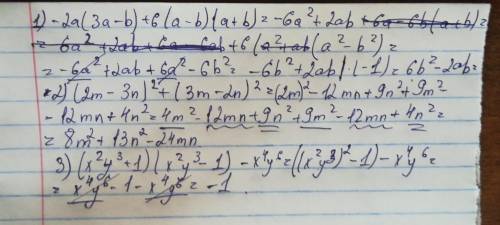 1) -2a(3a-b)+6(a-b)(a+b)=-6a²+2ab+6a-6b(a+b)=
=-6a²+2ab+6a-6ab+6(a²+ab(a²-b²)=
=-6a²+2ab+6a²-6b²=-6b²+2ab|·(-1)=6b²-2ab=
2)(2m-3n)²+(3m-2n)²=(2m)²-12mn+9n²+9m²
-12mn+4n²=4m²-12mn+9n²+9m²-12mn+4n²=
=8m²+13n²-24mn
3)(x²y³+1)(x²y³-1)-x⁴y⁶=((x²y³)²-1)-x⁴y⁶=
=x⁴y⁶-1-x⁴y⁶=-1